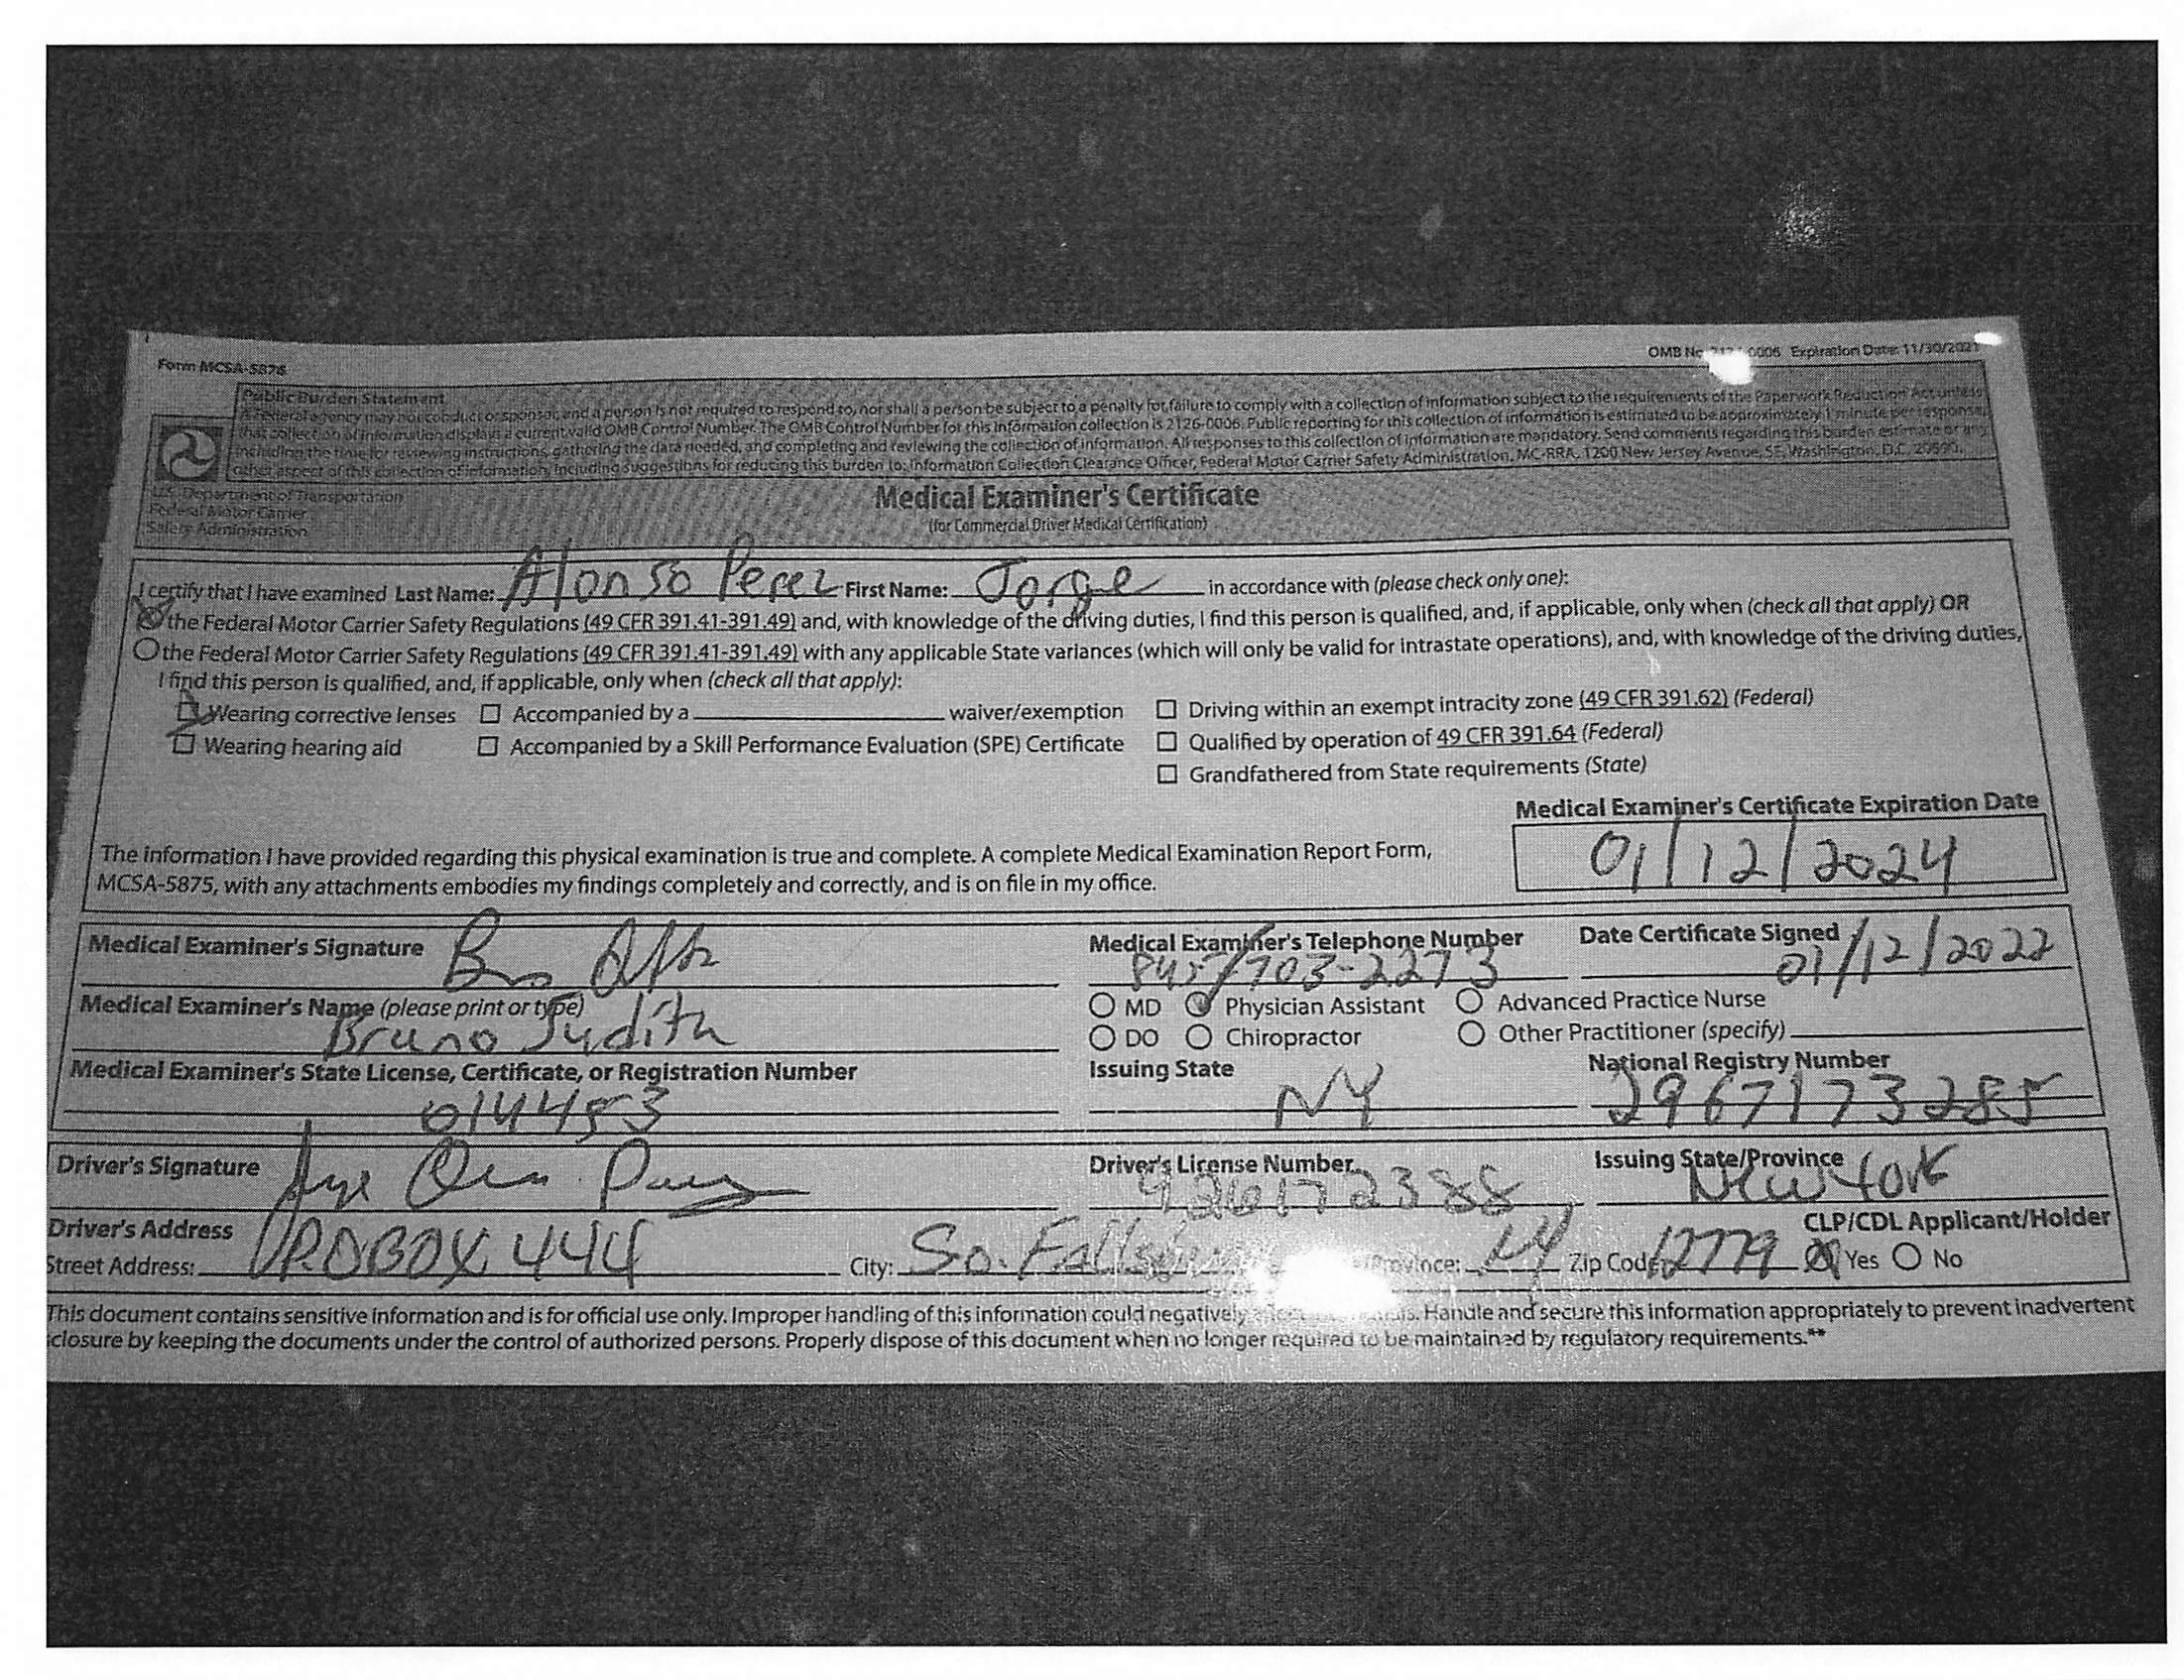 Form MCSA-5876
OMB No. 0006 Expiration Date: 11/30/2021
Public Burden Statement
A Federal agency may not conduct or sponsor, and a person is not required to respond to, nor shall a person be subject to a penalty for, failure to comply with a collection of information subject to the requirements of the Paperwork Reduction Act unless
that collection of information displays a current valid OMB Control Number. The OMB Control Number for this information collection is 2126-0006. Public reporting for this collection of information is estimated to be approximately 1 minute per response,
including the time for reviewing instructions, gathering the data needed, and completing and reviewing the collection of information. All responses to this collection of information are mandatory. Send comments regarding this burden estimate or any
other aspect of this collection of information, including suggestions for reducing this burden to: Information Collection Clearance Officer, Federal Motor Carrier Safety Administration, MC-RRA, 1200 New Jersey Avenue, SE, Washington, D.C. 20590.
U.S. Department of Transportation
Federal Motor Carrier
Safety Administration
Medical Examiner's Certificate
(for Commercial Driver Medical Certification)
I certify that I have examined Last Name: Alonso Perez First Name: Jorge in accordance with (please check only one):
the Federal Motor Carrier Safety Regulations (49 CFR 391.41-391.49) and, with knowledge of the driving duties, I find this person is qualified, and, if applicable, only when (check all that apply) OR
the Federal Motor Carrier Safety Regulations (49 CFR 391.41-391.49) with any applicable State variances (which will only be valid for intrastate operations), and, with knowledge of the driving duties,
I find this person is qualified, and, if applicable, only when (check all that apply):
Wearing corrective lenses Accompanied by a waiver/exemption Driving within an exempt intracity zone (49 CFR 391.62) (Federal)
Wearing hearing aid Accompanied by a Skill Performance Evaluation (SPE) Certificate Qualified by operation of 49 CFR 391.64 (Federal)
Grandfathered from State requirements (State)
Medical Examiner's Certificate Expiration Date
01/12/2024
The information I have provided regarding this physical examination is true and complete. A complete Medical Examination Report Form,
MCSA-5875, with any attachments embodies my findings completely and correctly, and is on file in my office.
Medical Examiner's Signature Medical Examiner's Telephone Number Date Certificate Signed
845/703-2273 01/12/2022
Medical Examiner's Name (please print or type) MD Physician Assistant Advanced Practice Nurse
Bruno Judith DO Chiropractor Other Practitioner (specify)
Medical Examiner's State License, Certificate, or Registration Number Issuing State National Registry Number
014453 NY 2967173285
Driver's Signature Driver's License Number Issuing State/Province
426172388 New York
Driver's Address CLP/CDL Applicant/Holder
Street Address: P.O BOX 444 City: So. Province: NY Zip Code 12779 Yes No
This document contains sensitive information and is for official use only. Improper handling of this information could negatively Handle and secure this information appropriately to prevent inadvertent
closure by keeping the documents under the control of authorized persons. Properly dispose of this document when no longer required to be maintained by regulatory requirements.**